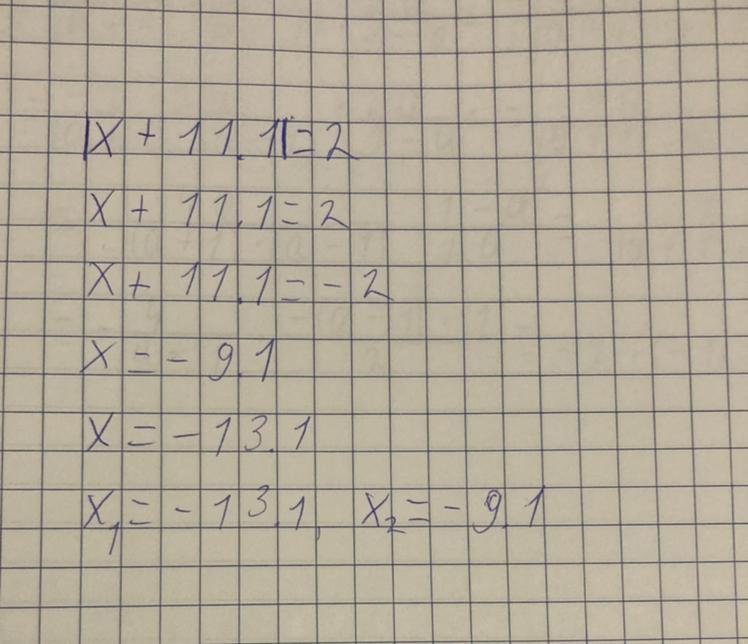 |x + 11.1| = 2
x + 11.1 = 2
x + 11.1 = - 2
x = - 9.1
x = - 13.1
x₁ = - 13.1, x₂ = - 9.1